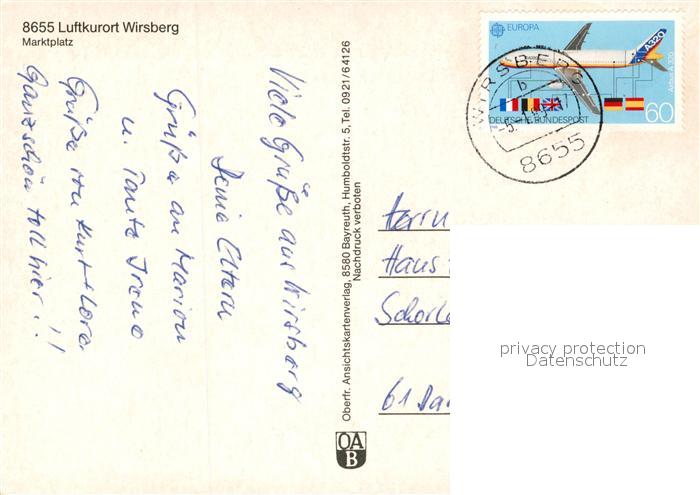 8655 Luftkurort Wirsberg
Marktplatz
Viele Grüße aus Wirsberg
Deine Eltern
Grüße an Marion
u. Tante Irene
Grüße von Kurt + Lore
Ganz schön toll hier..!!
Oberfr. Ansichtskartenverlag, 8580 Bayreuth, Humboldtstr. 5, Tel. 0921/64126
Nachdruck verboten
OA
B
EUROPA
A320
Airbus A 320
DEUTSCHE BUNDESPOST
60
WIRSBERG
b
8655
Herrn
Hans
61 Da
privacy protection
Datenschutz